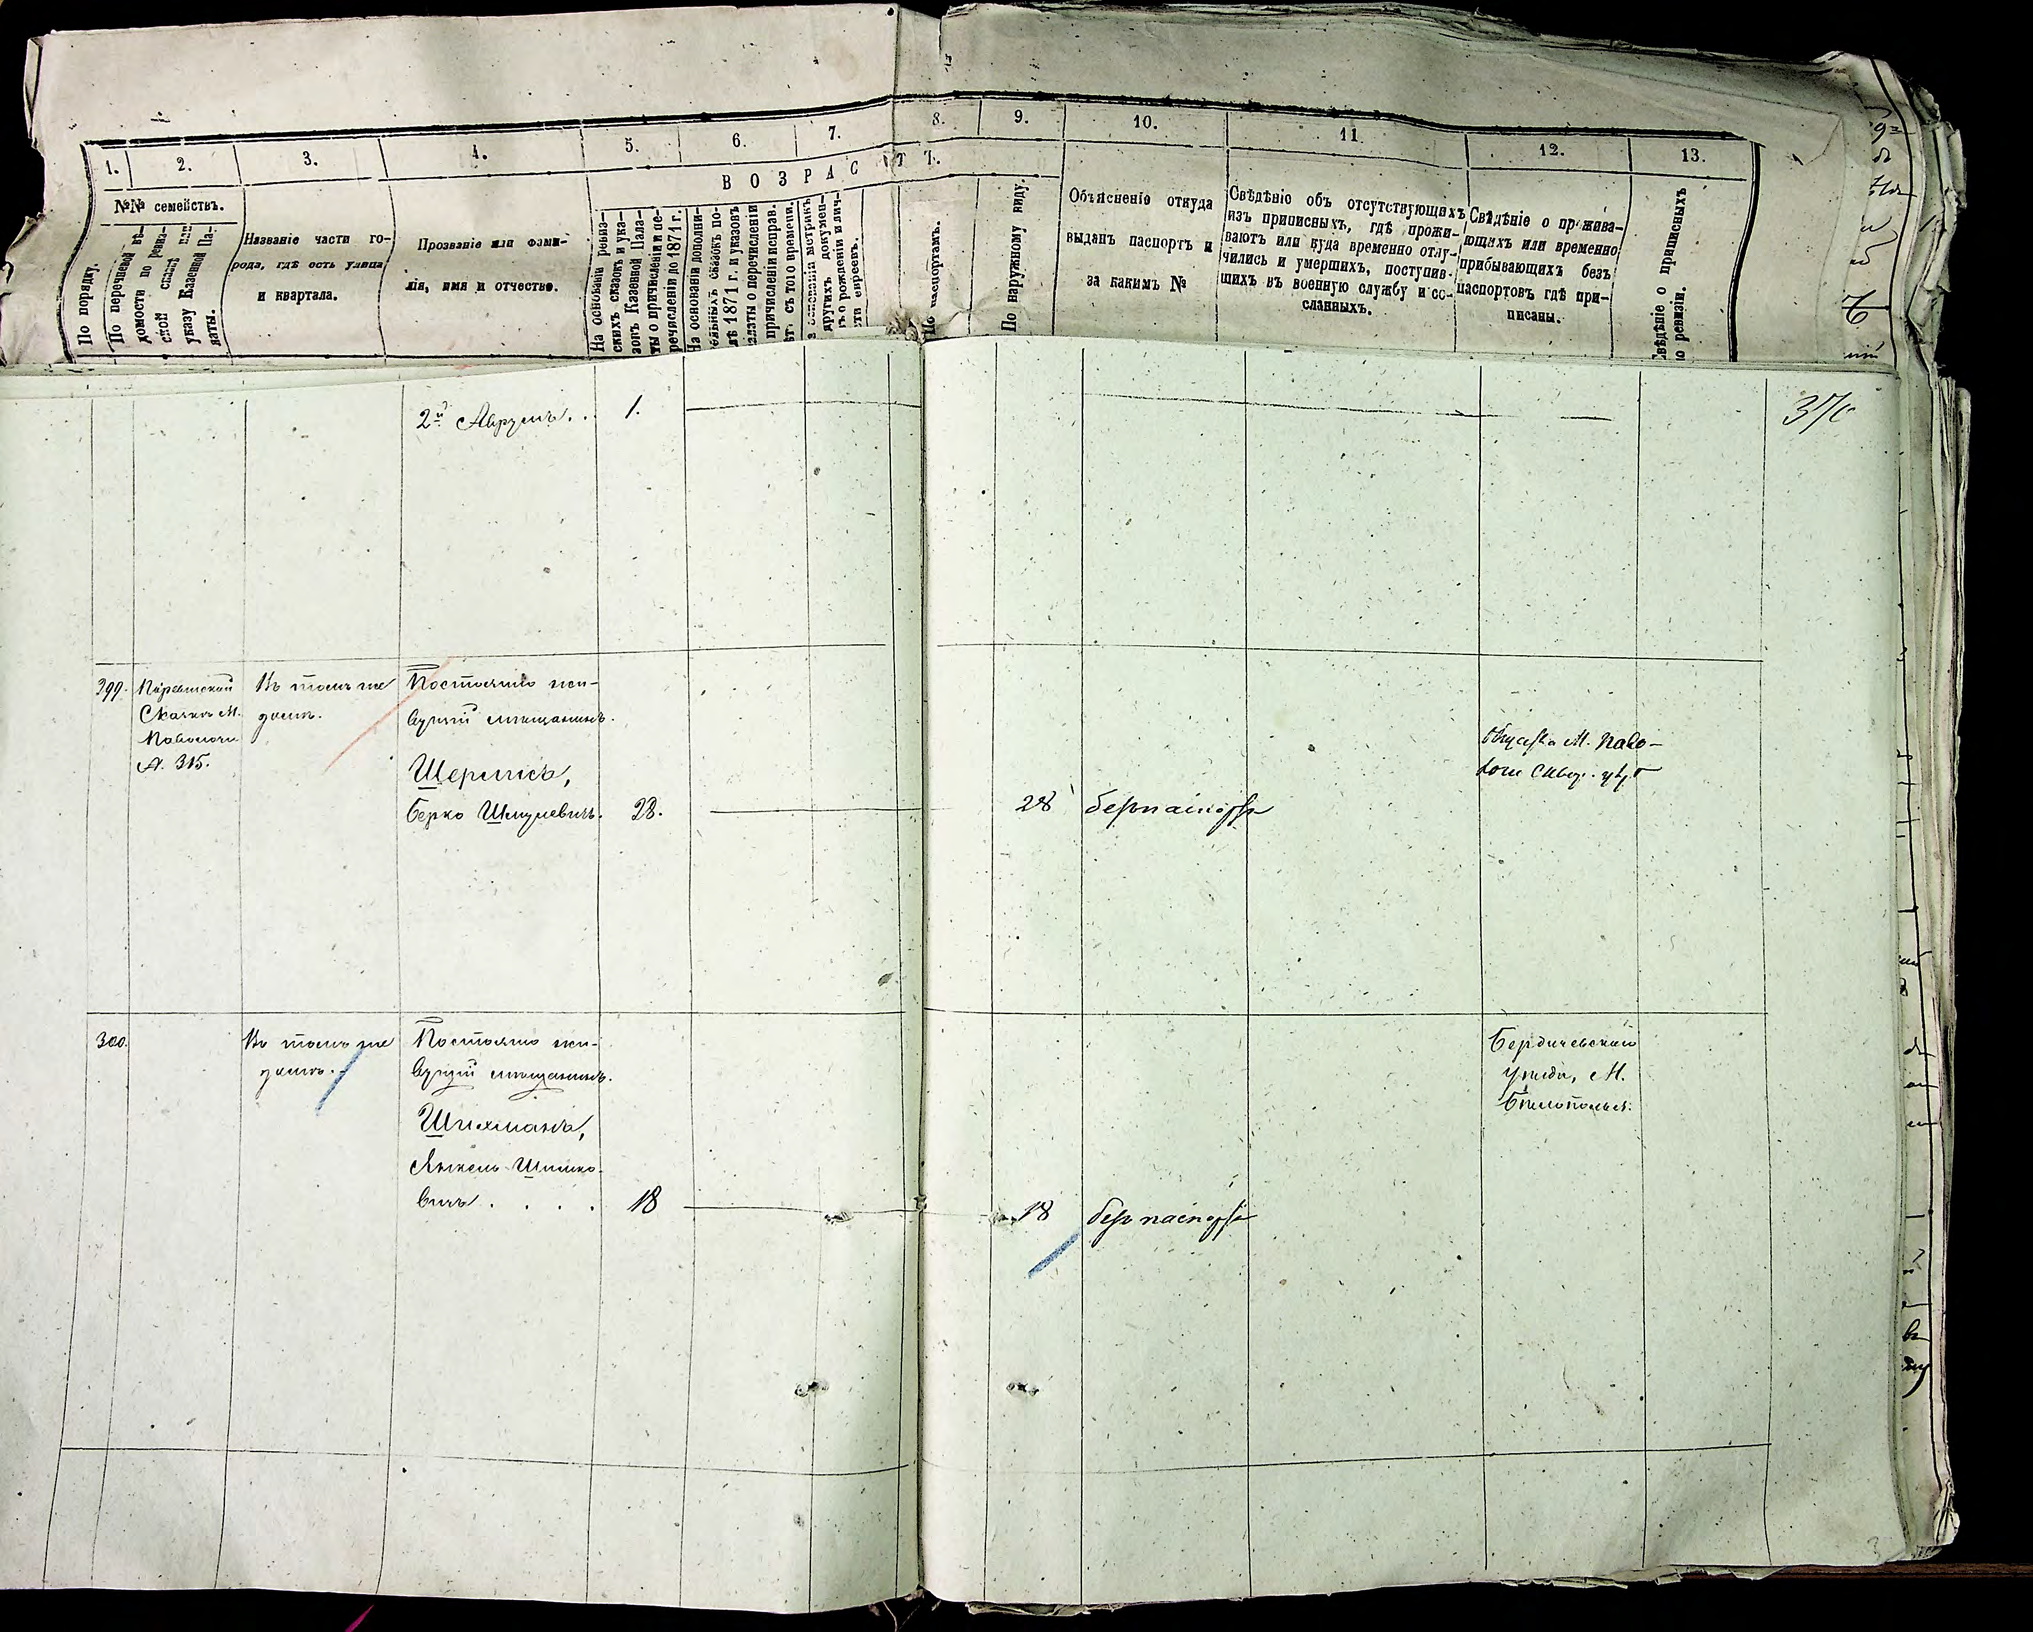 1. 2. 3. 4. 5. 6. 7. 8. 9. 10. 11 12. 13.
ВОЗРАСТЪ.
№№ семействъ.
По порядку.
По перечневой вѣ-
домости по ревиз-
ской сказкѣ или
указу Казенной Па-
латы.
Названіе части го-
рода, гдѣ есть улица
и квартала.
Прозваніе или фами-
лія, имя и отчество.
На основаніи ревиз-
скихъ сказокъ и ука-
зовъ Казенной Пала-
ты о причисленіи и пе-
речисленіи до 1871 г.
На основаніи дополни-
тельныхъ сказокъ по-
слѣ 1871 г. и указовъ
Палаты о перечисленіи
причисленіи исправ.
лѣтъ съ того времени.
На основаніи метрикъ
и другихъ докумен-
товъ о рожденіи и лич-
ности евреевъ.
По паспортамъ.
По наружному виду.
Объясненіе откуда
выданъ паспортъ и
за какимъ №
Свѣдѣніе объ отсутствующихъ
изъ приписныхъ, гдѣ прожи-
ваютъ или куда временно отлу-
чились и умершихъ, поступив-
шихъ въ военную службу и со-
сланныхъ.
Свѣдѣніе о прожива-
ющихъ или временно
прибывающихъ безъ
паспортовъ гдѣ при-
писаны.
Свѣдѣніе о приписныхъ
по ревизіи.
2й Аврумъ . . 1.
299.
Сказкѣ М.
Паволочи
№. 315.
Въ томъ же
домѣ.
Постоянно жи-
вущій мѣщанинъ.
Шермисъ,
Берко Шмулевичъ. 28.
28 безъ паспорта
Общества М. Паво-
лочи Сквир. уѣз.
300.
Въ томъ же
домѣ.
Постоянно жи-
вущій мѣщанинъ.
Шихманъ,
Янкель Шимко-
вичъ . . . . 18
18 безъ паспорта
Бердичевскаго
уѣзда, М.
Бѣлополья.